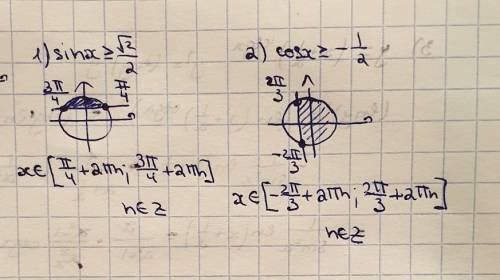 1) sinx ≥ √2/2
3π/4 π/4
x∈[π/4 + 2πn; 3π/4 + 2πn]
n∈Z
2) cosx ≥ -1/2
2π/3
-2π/3
x∈[-2π/3 + 2πn; 2π/3 + 2πn]
n∈Z